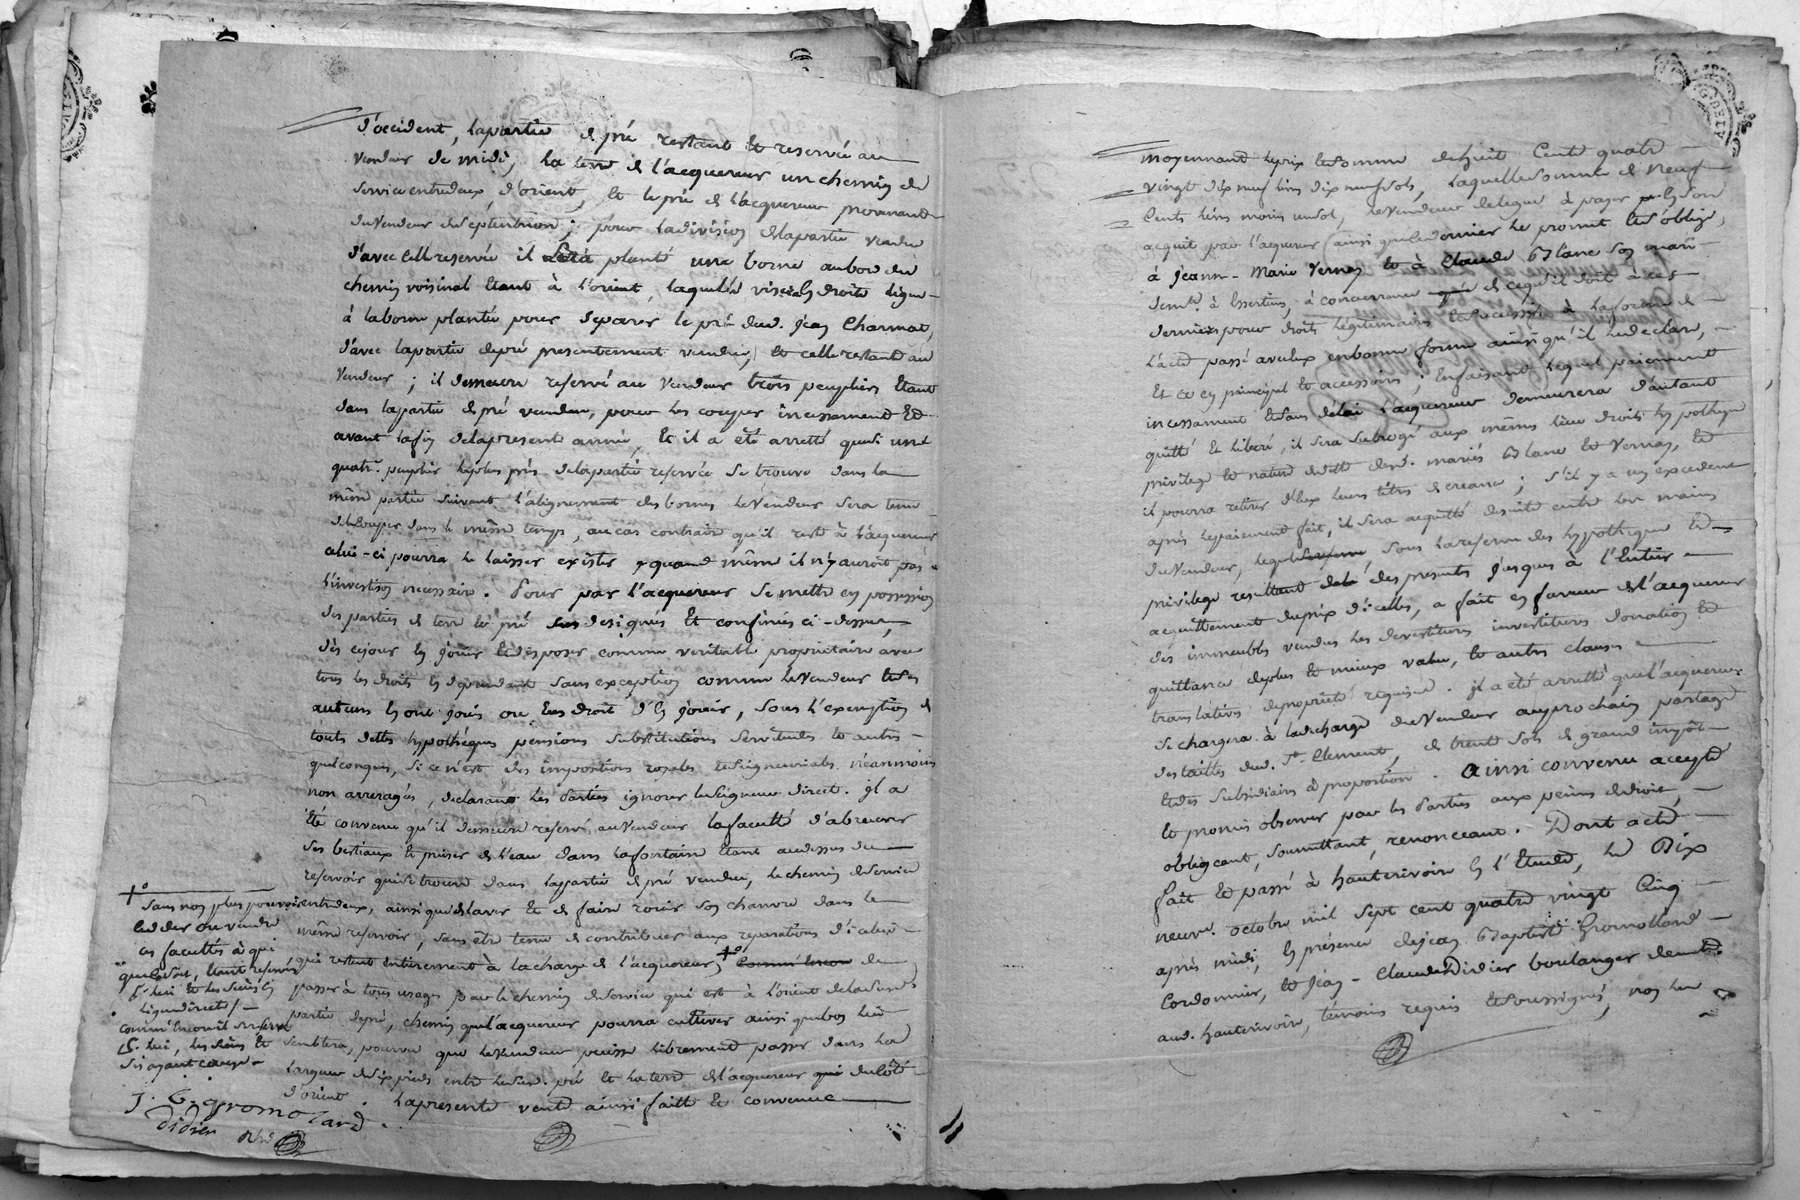 d'occident, la partie de pré restant et reservée au
vendeur de midi, la terre de l'acquereur un chemin de
service entredeux, d'orient, et le pré de l'acquereur provenant
du vendeur du septentrion ; pour la division de la partie vendue
d'avec celle reservée il sera planté une borne au bord du
chemin voisinal étant à l'orient, laquelle visera en droite ligne
à la borne plantée pour separer le pré dud. jean Charmat,
d'avec la partie de pré presentement vendue, et celle restant au
vendeur ; il demeure reservé au vendeur trois peupliers étant
dans la partie de pré vendue, pour les couper incessament et
avant la fin de la presente année, et il a été arretté que si un
quatr. peuplier le plus près de la partie reservée se trouve dans la
même partie suivant l'alignement des bornes le vendeur sera tenu
de le couper dans le même temps, au cas contraire qu'il reste à l'acquereur
celui-ci pourra le laisser exister quand même il n'y auroit pas
l'invertison necessaire. Pour par l'acquereur se mettre en possession
des parties de terre et pré designées et confinées ci-dessus,
dès ce jour en jouir et disposer comme veritable proprietaire avec
tous les droits en dependants sans exception comme le vendeur et ses
auteurs en ont joui ou eu droit d'en jouir, sous l'exemption de
touts dettes hypothéques pensions substitutions servitudes et autres
quelconques, si ce n'est des impositions royales et seigneuriales néanmoins
non arreragées, declarant les parties ignorer le seigneur direct. Il a
été convenu qu'il demeure reservé au vendeur la faculté d'abreuver
ses bestiaux et puiser de l'eau dans la fontaine étant audessus du
reservoir qui se trouve dans la partie de pré vendue, le chemin de service
entredeux, ainsi que de laver et de faire rouir son chanvre dans le
même reservoir, sans être tenu de contribuer aux reparations d'icelui
qui restent entierement à la charge de l'acquereur, + comme encore de
passer à tous usages par le chemin de service qui est à l'orient de la susd.
partie de pré, chemin que l'acquereur pourra cultiver ainsi que bon lui
semblera, pourvu que le vendeur puisse librement passer dans la
largeur de six pieds entre le sud. pré et la terre de l'acquereur du côté
d'orient. La presente vente ainsi faitte et convenue
+ sans non plus pouvoir
ceder ou vendre
ces facultés à qui
que ce soit, étant reservées
pr. lui et les siens en
ligne directe /
comme encore il se reserve
pr. lui, les siens et
ses ayant cause
J. B. gromolard
Didier
moyennant le prix et somme de huit cent quatre
vingt dix neuf livres dix neuf sols, laquelle somme de neuf
cents livres moins un sol, le vendeur delegue à payer en son
acquit par l'acquereur ainsi que ce dernier le promet et s'oblige,
à Jeanne-Marie Vernay et à Claude Blanc son mari
demt. à Essertines, à concurrence de ce qu'il doit à ces
derniers pour droits légitimaires à la forme de
l'acte passé avec eux en bonne forme ainsi qu'il le declare,
et ce en principal et accessoires ; en faisant lequel paiement
incessament et sans délai l'acquereur demeurera d'autant
quitté et liberé, il sera subrogé aux mêmes lieu droits hypotheque
privilege et nature de dette desd. mariés Blanc et Vernay, et
il pourra retirer d'eux leurs titres de creance ; s'il y a un excedent
après le paiement fait, il sera acquitté de suite entre les mains
du vendeur, sous la reserve des hypotheque et
privilege resultant des presentes jusques à l'entier
acquittement du prix d'icelles, a fait en faveur de l'acquereur
des immeubles vendus les devestitures investitures donation et
quittance de plus et mieux value, et autres clauses
translatives de proprieté requises. Il a été arretté que l'acquereur
se chargera à la decharge du vendeur au prochain partage
des tailles dud. St. Clement, de trente sols de grand impôt
et des subsidiaires à proportion. Ainsi convenu accepté
et promis observer par les parties aux peines de droit,
obligeant, soumettant, renonceant. Dont acte
fait et passé à hauterivoire en l'Etude, le Dix
neuvr. octobre mil sept cent quatre vingt cinq
après midi, en présence de jean Baptiste Gromollard
Cordonnier, et jean-Claude Didier boulanger demts.
aud. hauterivoire, témoins requis et soussignés, non le